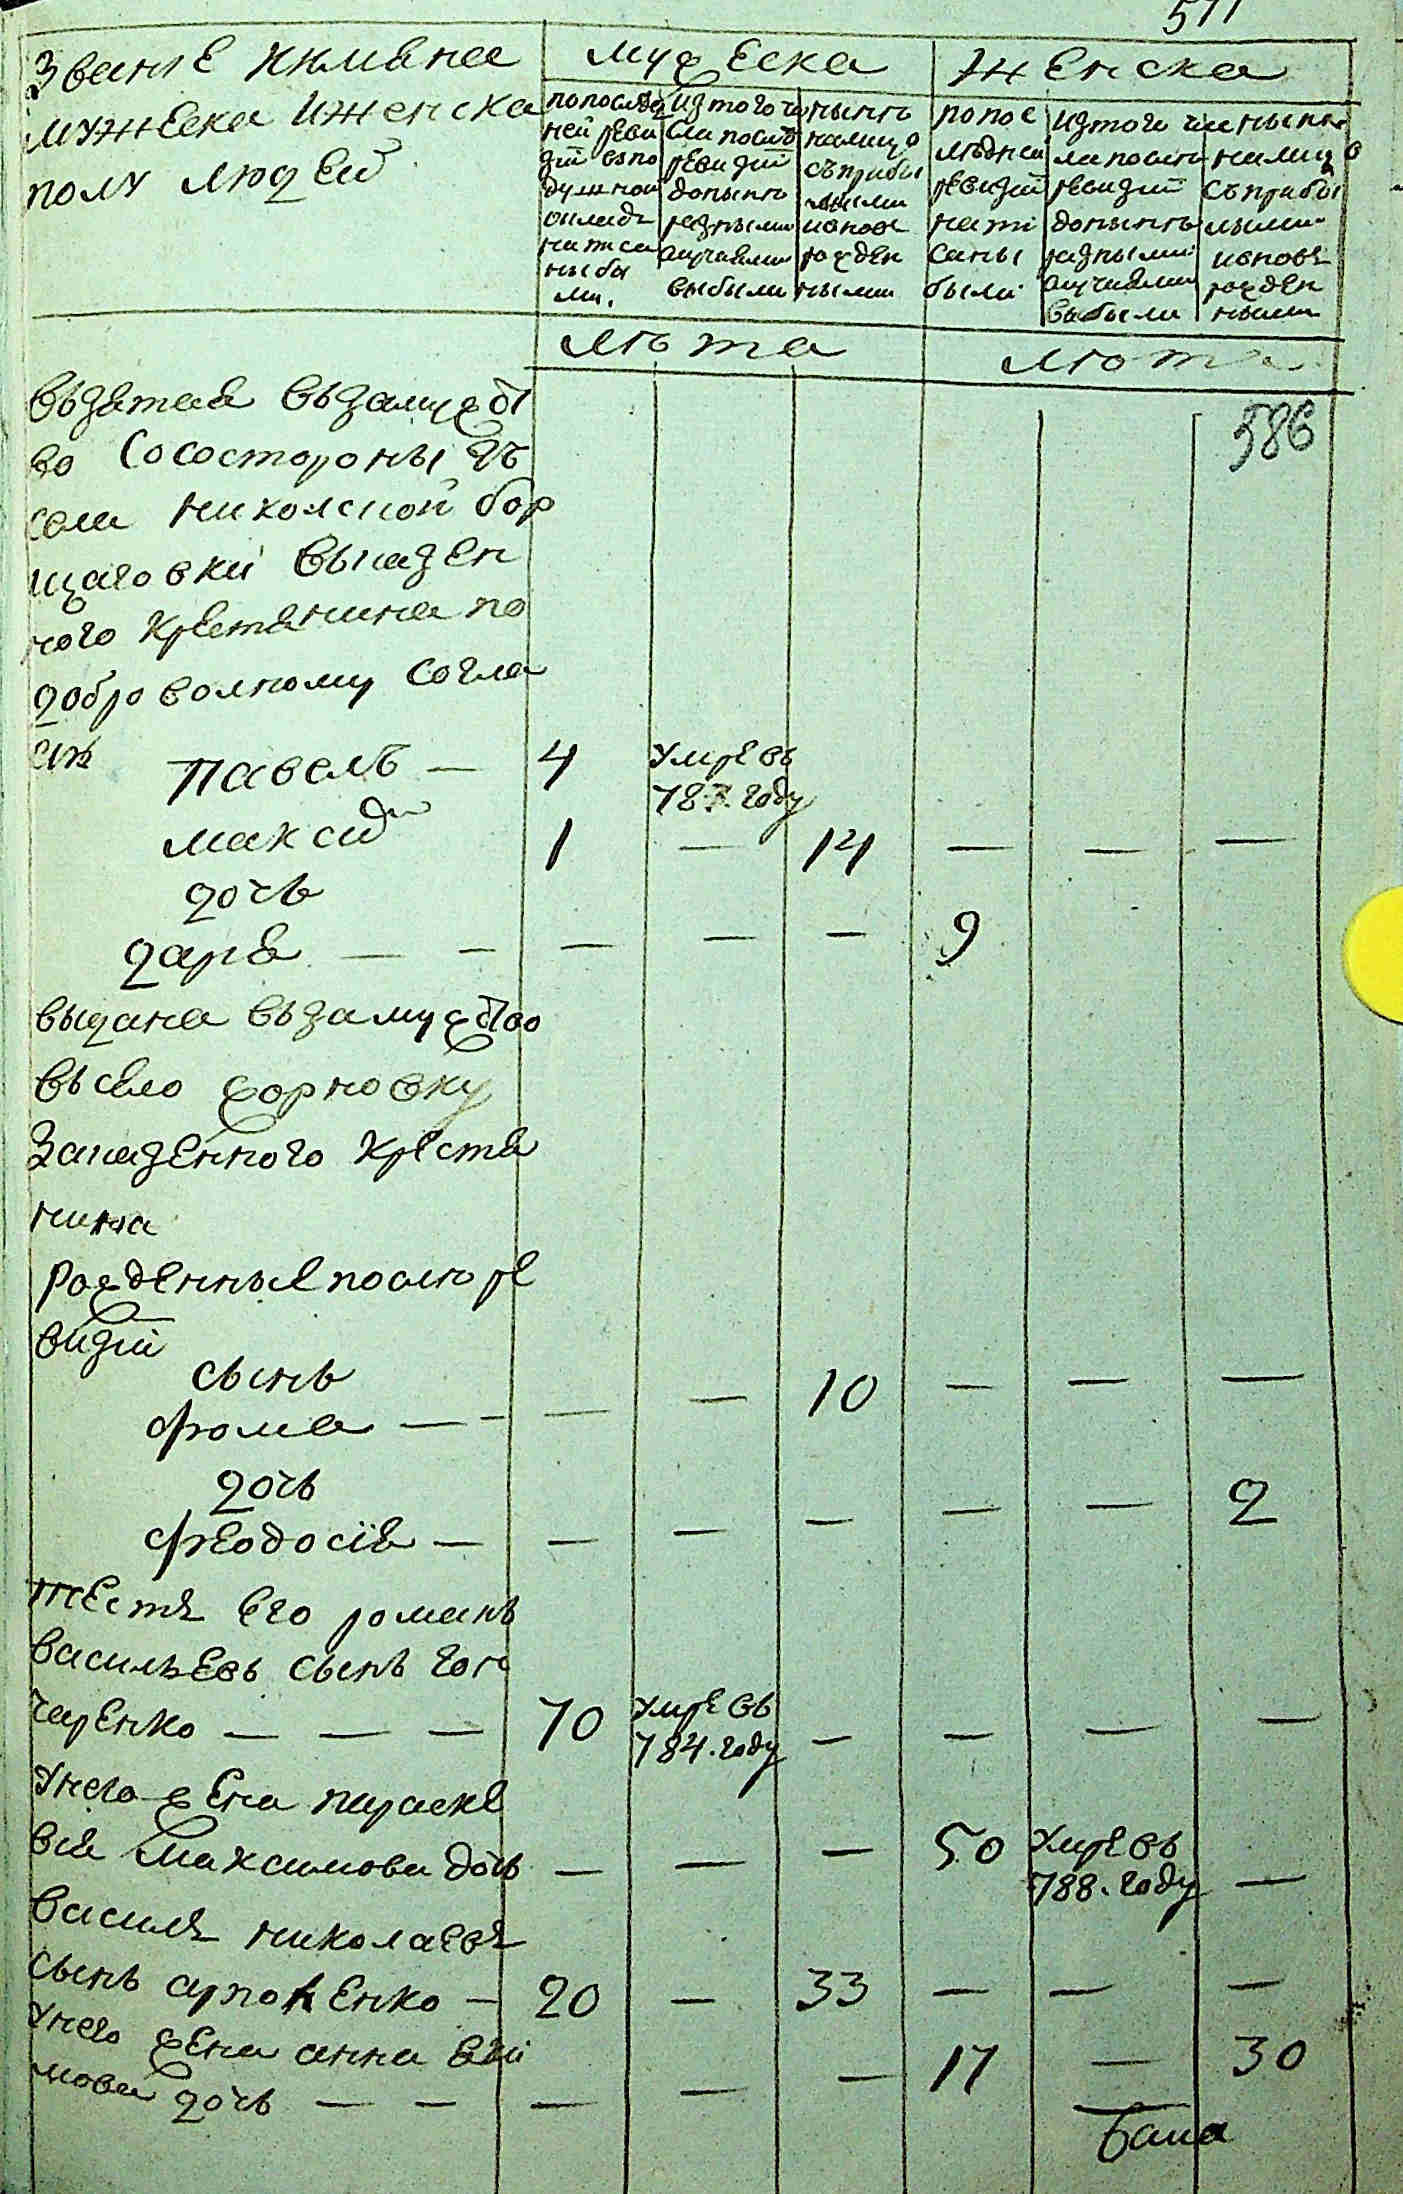 577
Званiе иимяна
мужеска иженска
полу людей
мужеска
женска
попослед
ней реви
зiи впо
душной
окладъ
написа
ны бы
ли.
изтого чи
сла послѣ
ревизiи
донынѣ
разными
случаями
выбыли
нынѣ
налицо
съприбы
лыми
ивнове
рожден
ными
попос
лѣдней
ревизiи
напи
саны
были
изтого чи
ла послѣ
ревизiи
донынѣ
разными
случаями
выбыли
нынѣ
налицо
съприбы
лыми
ивновь
рожден
ными
лѣта
лѣта
586
взятая взамужст
во сосостороны зъ
села николской бор
щаговки виказен
ного крестянина по
доброволному согла
сiю
Павелъ — 4 умре въ
787. году
максим 1 — 14 — — —
дочь
даря — — — — — 9
выдана взамужство
всело жорновку
заказенного крестя
нина
рожденные послѣ ре
визiи
сынъ
фома — — — — 10 — — —
дочь
феодосiя — — — — — — 2
тестя его романъ
васильевъ сынъ гон
чаренко — — — 70 умре въ
784. году — — — —
унего жена параске
вiя максимова дочь — — — 50 умре въ
788. году —
василя николаевя
сынъ артоменко — 20 — 33 — — —
унего жена анна ефи
мова дочь — — — — — 17 — 30
Баша